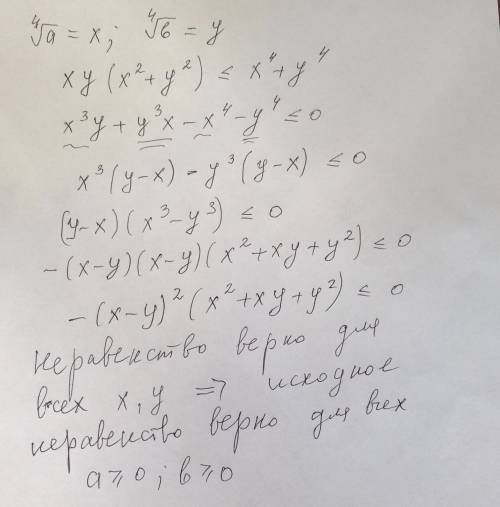 ⁴√a = x; ⁴√b = y
xy (x² + y²) ≤ x⁴ + y⁴
x³y + y³x − x⁴ − y⁴ ≤ 0
x³(y−x) − y³(y−x) ≤ 0
(y−x)(x³−y³) ≤ 0
−(x−y)(x−y)(x²+xy+y²) ≤ 0
−(x−y)²(x²+xy+y²) ≤ 0
Неравенство верно для
всех x, y => исходное
неравенство верно для всех
a ≥ 0; b ≥ 0